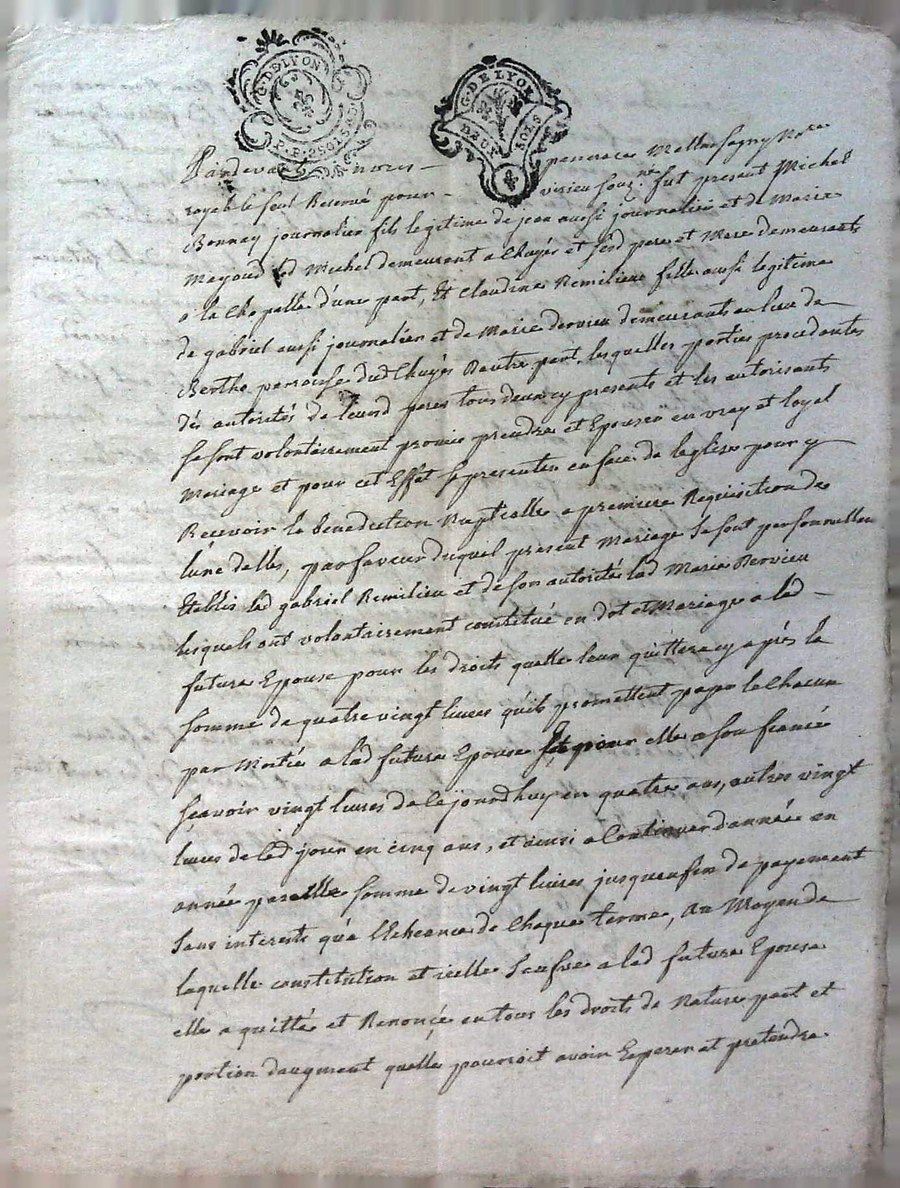 G. DE LYON
P. P. 2 SOLS 4 D.
G. DE LYON
DEUX SOLS
Pardevant le nores penerace Mellou fagny Nore
royal le seul Reservé pour virieu souz.ne fut present Michel
Bonnay journalier fils legitime de jean aussi journalier et de Marie
Mayoud led Michel demeurant a Chuyés et sesd pere et Mere demeurants
a la Chapelle d'une part, Et Claudine Remilieu fille aussi legitime
de gabriel aussi journalier et de Marie dervieu demeurants au lieu de
Berthe parroisse dud Chuyés Dautre part, lesquelles parties procedantes
dés autorités de leursd peres tous deux cy presents et les autorisants
se sont volontairement promis prendre et Epouser en vray et loyal
Mariage et pour cet Effet se presenter en face de leglise pour y
Recevoir la benediction Nuptialle a premiere Requisition de
lune delles, par faveur duquel present Mariage se sont personnellem
Etablis led gabriel Remilieu et de son autorité lad Marie Dervieu
lesquels ont volontairement constitué en dot et Mariage a lad
future Epouse pour les droits quelle leur quittera cy après la
somme de quatre vingt livres qu'ils promettent payer le Chacun
par Moitié a lad future Epouse et pour elle a son fiancé
scavoir vingt livres de ce jourdhuy en quatre ans, autres vingt
livres de ced jour en cinq ans, et ainsi a Continuer d'année en
année pareille somme de vingt livres jusqu'en fin de payement
sans interets qu'a l'Echeance de Chaque terme, Au Moyen de
laquelle constitution et icelle sauve a lad future Epouse
elle a quitté et Renoncé en tous les droits de Nature part et
portion daugment quelle pourroit avoir Esperer et pretendre